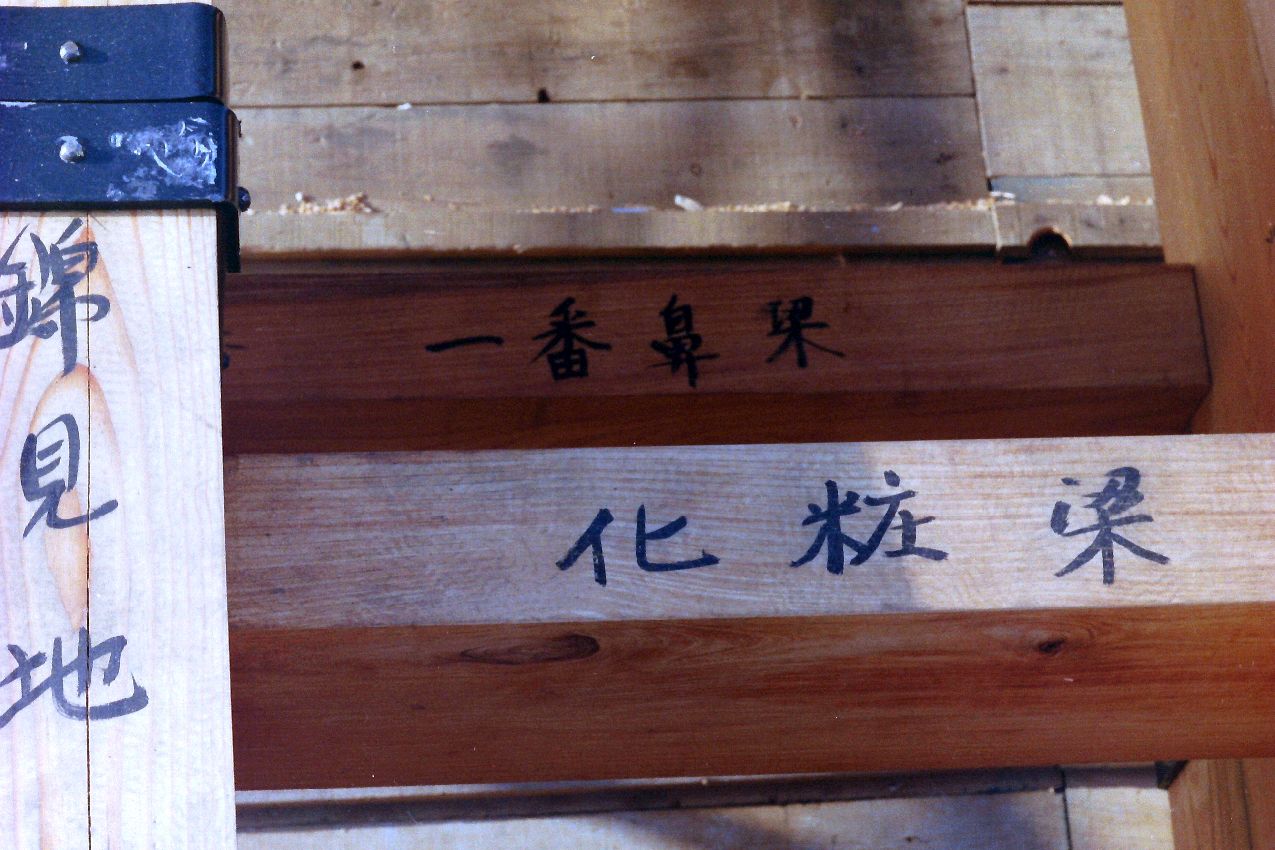 錦見地
一番鼻梁
化粧梁